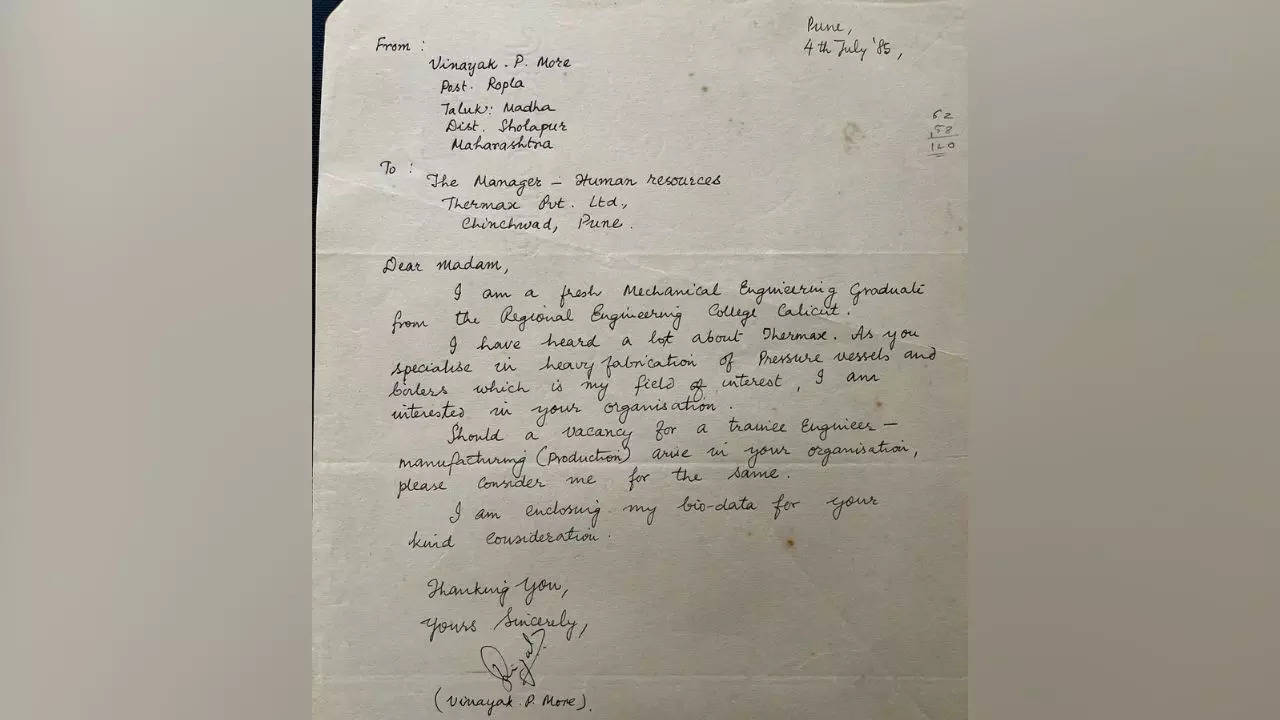 Pune,
4th July '85,
From :
Vinayak . P. More
Post. Ropla
Taluk: Madha
Dist. Sholapur
Maharashtra
62
58
120
To :
The Manager – Human resources
Thermax Pvt. Ltd.,
Chinchwad, Pune.
Dear Madam,
I am a fresh Mechanical Engineering Graduate
from the Regional Engineering College Calicut.
I have heard a lot about Thermax. As you
specialise in heavy fabrication of Pressure vessels and
boilers which is my field of interest, I am
interested in your organisation.
Should a vacancy for a trainee Engineer –
manufacturing (Production) arise in your organisation,
please consider me for the same.
I am enclosing my bio-data for your
kind consideration.
Thanking You,
Yours Sincerely,
(Vinayak . P. More).